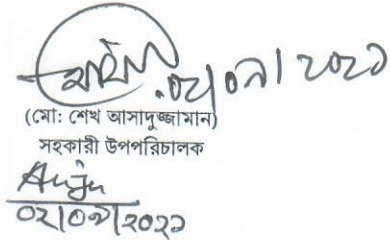 ০২/০৯/২০২১
(মো: শেখ আসাদুজ্জামান)
সহকারী উপপরিচালক
Anju
০২/০৯/২০২১